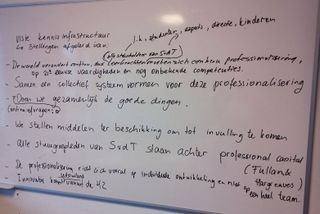 Visie kennisinfrastructuur
in stellingen afgeleid van:
l.k., studenten, experts, directie, kinderen
(alle stakeholders van SvdT
- De wereld verandert continu, dus leerkrachten moeten zich continu professionaliseren,
op 21e eeuwse vaardigheden en nog onbekende competenties.
- Samen een collectief systeem vormen voor deze professionalisering
- Doen we gezamenlijk de goede dingen.
- We stellen middelen ter beschikking om tot invulling te komen
- Alle stuurgroepleden van SvdT staan achter professional capital
(Fullan &
Hargreaves)
- De professionalisering richt zich vooral op individuele ontwikkeling en niet op
een heel team.
- Innovatie komt vanuit de 42